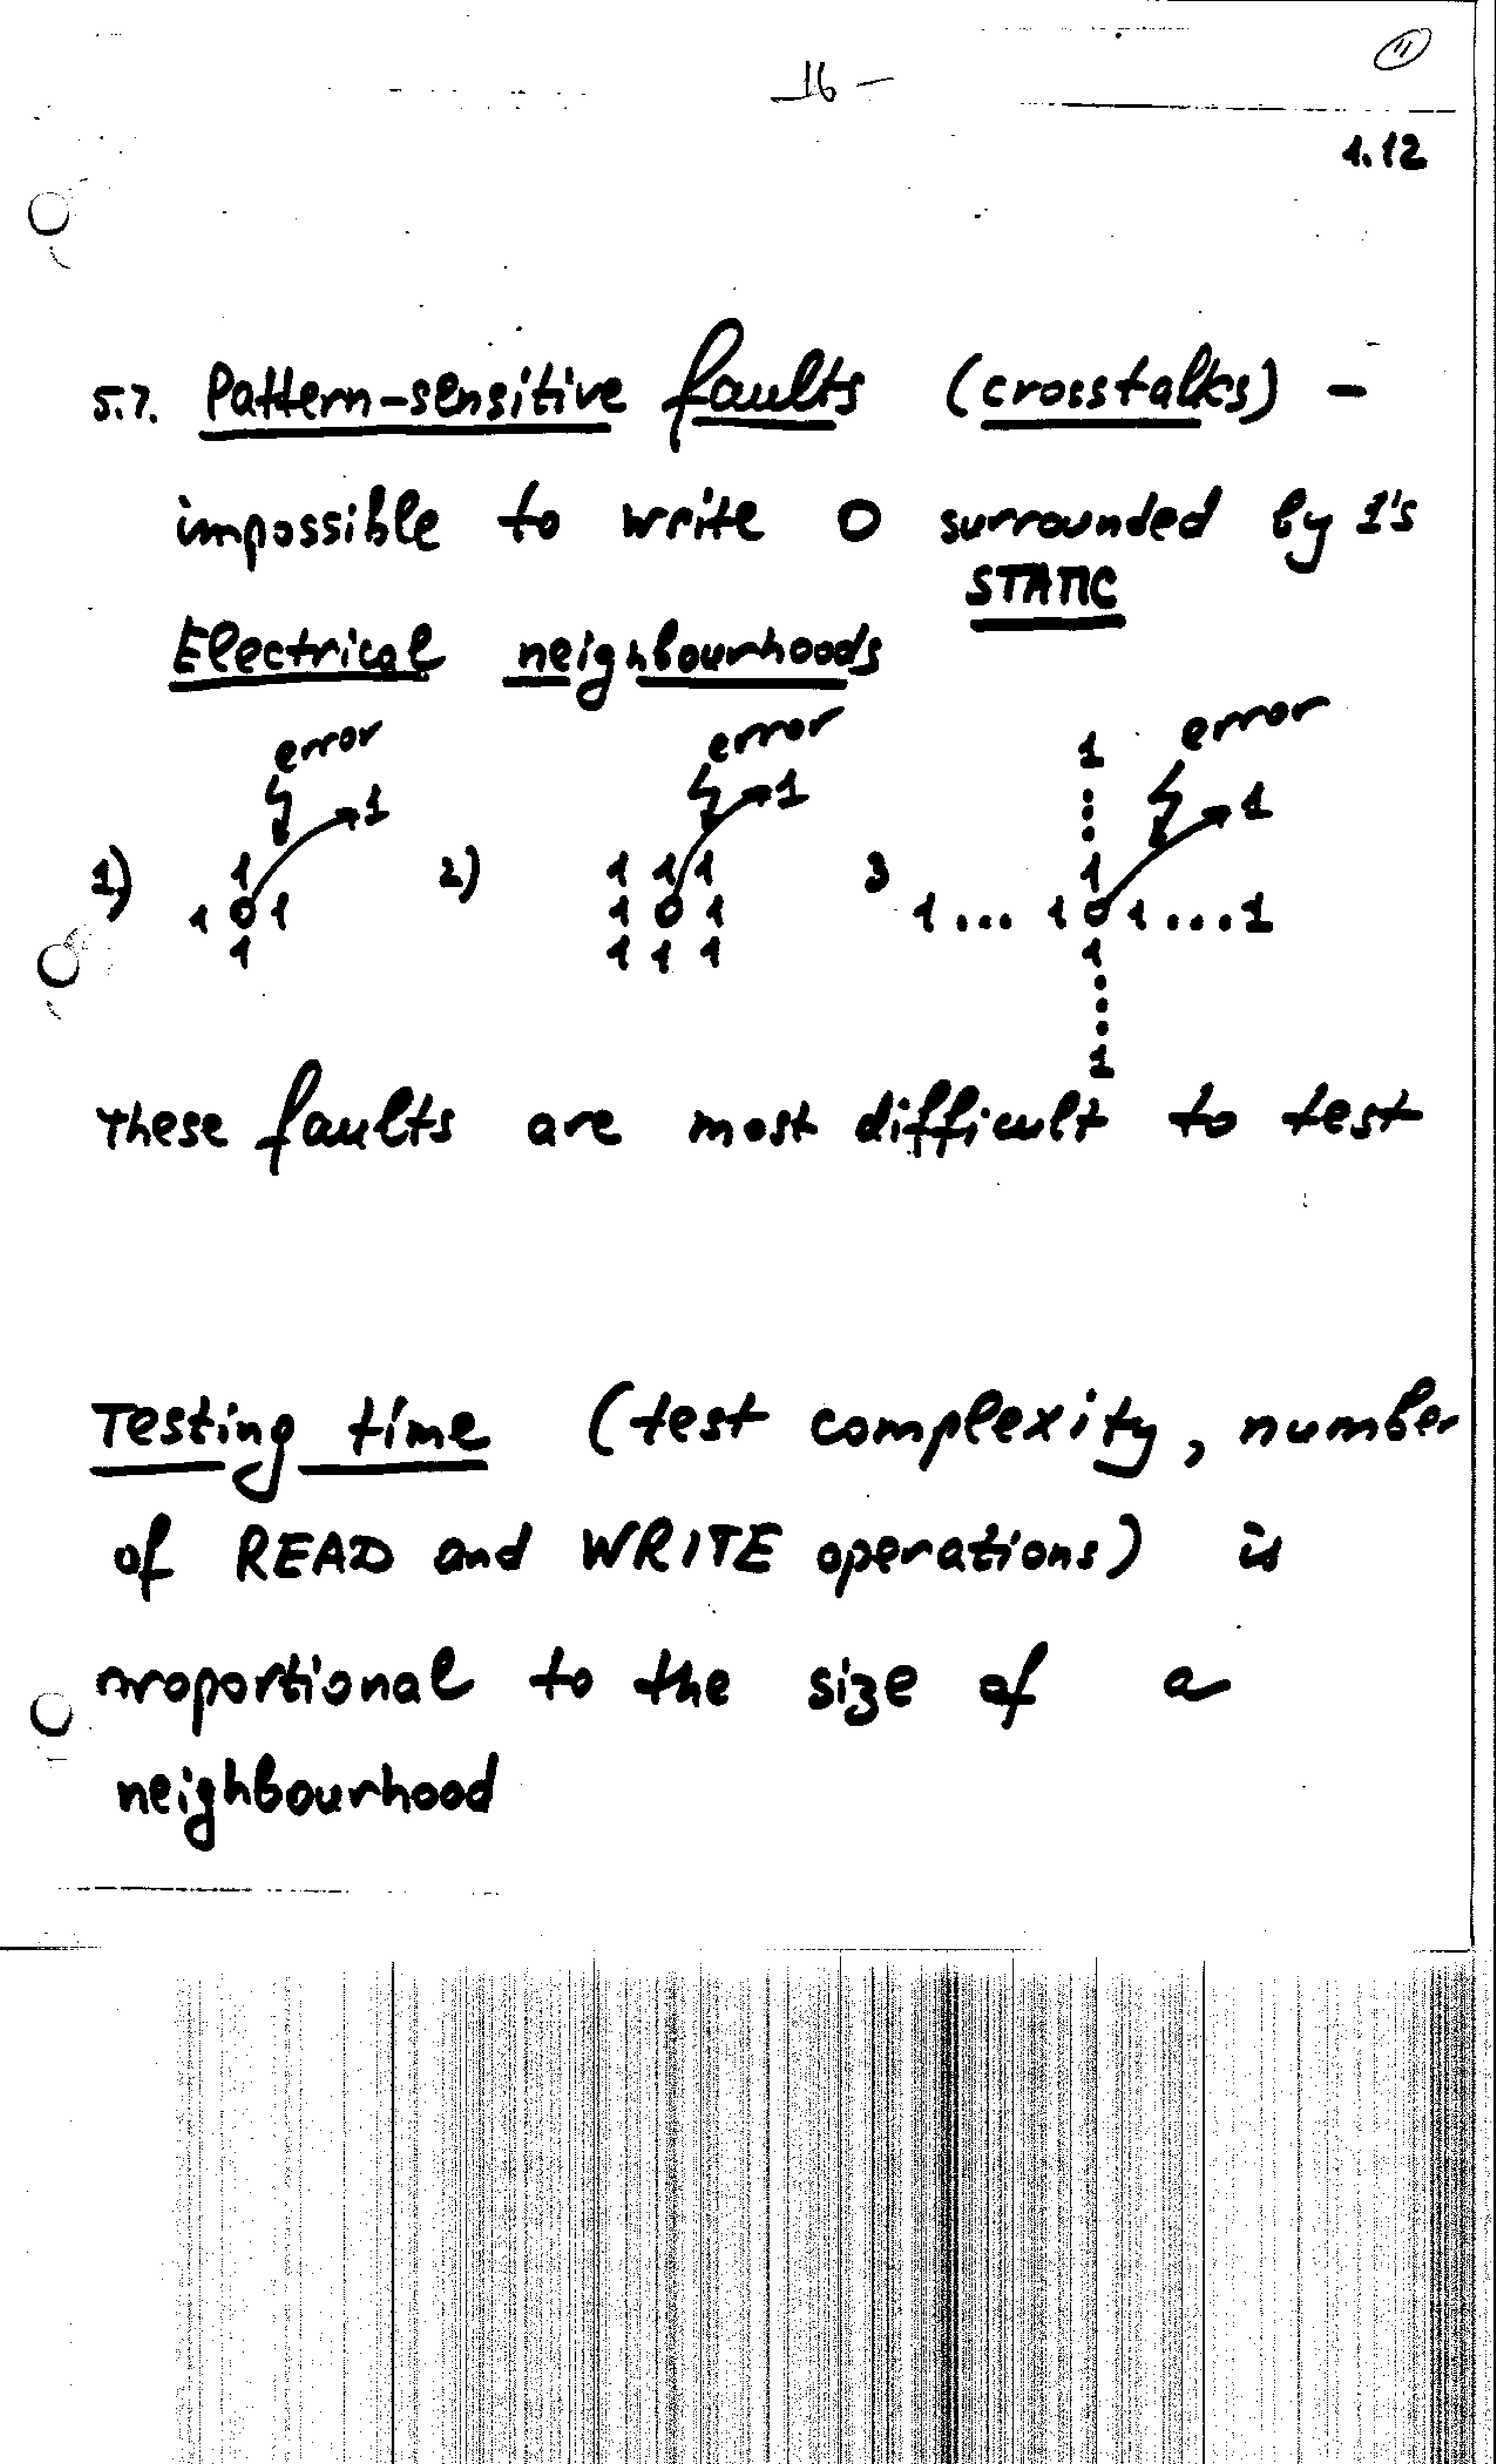 11
16 -
1.12
5.7. Pattern-sensitive faults (crosstalks) -
impossible to write 0 surrounded by 1's
STATIC
Electrical neighbourhoods
error error error
1 1 1 1
1) 2) 3
1 1 1 1 1
1 0 1 1 0 1 1... 1 0 1...1
1 1 1 1 1
1
These faults are most difficult to test
Testing time (test complexity, number
of READ and WRITE operations) is
proportional to the size of a
neighbourhood